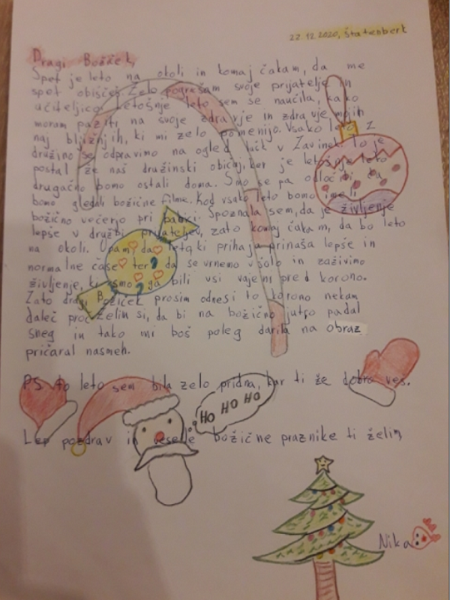 22.12.2020, Štatenberk
Dragi Božiček,
Spet je leto na okoli in komaj čakam, da me
spet obiščeš. Zelo pogrešam svoje prijatelje in
učiteljico. Letošnje leto sem se naučila, kako
moram paziti na svoje zdravje in zdravje mojih
naj bližnjih, ki mi zelo pomenijo. Vsako leto z
družino se odpravimo na ogled luči v Žavinek to je
postal že naš družinski običaj, ker je letošnje leto
drugače bomo ostali doma. Smo se pa odločili da
bomo gledali božične filme. Kod vsako leto bomo imeli
božično večerjo pri babici. Spoznala sem, da je življenje
lepše v družbi prijateljev, zato komaj čakam, da bo leto
na okoli. Upam, da leto ki prihaja prinaša lepše in
normalne čase ter da se vrnemo v šolo in zaživimo
življenje, ki smo ga bili vsi vajeni pred korono.
Zato dragi Božiček prosim odnesi to korono nekam
daleč proč. Želim si, da bi na božično jutro padal
sneg in tako mi boš poleg darila na obraz
pričaral nasmeh.
PS to leto sem bila zelo pridna, kar ti že dobro veš.
HO HO HO
Lep pozdrav in vesele božične praznike ti želim
Nika